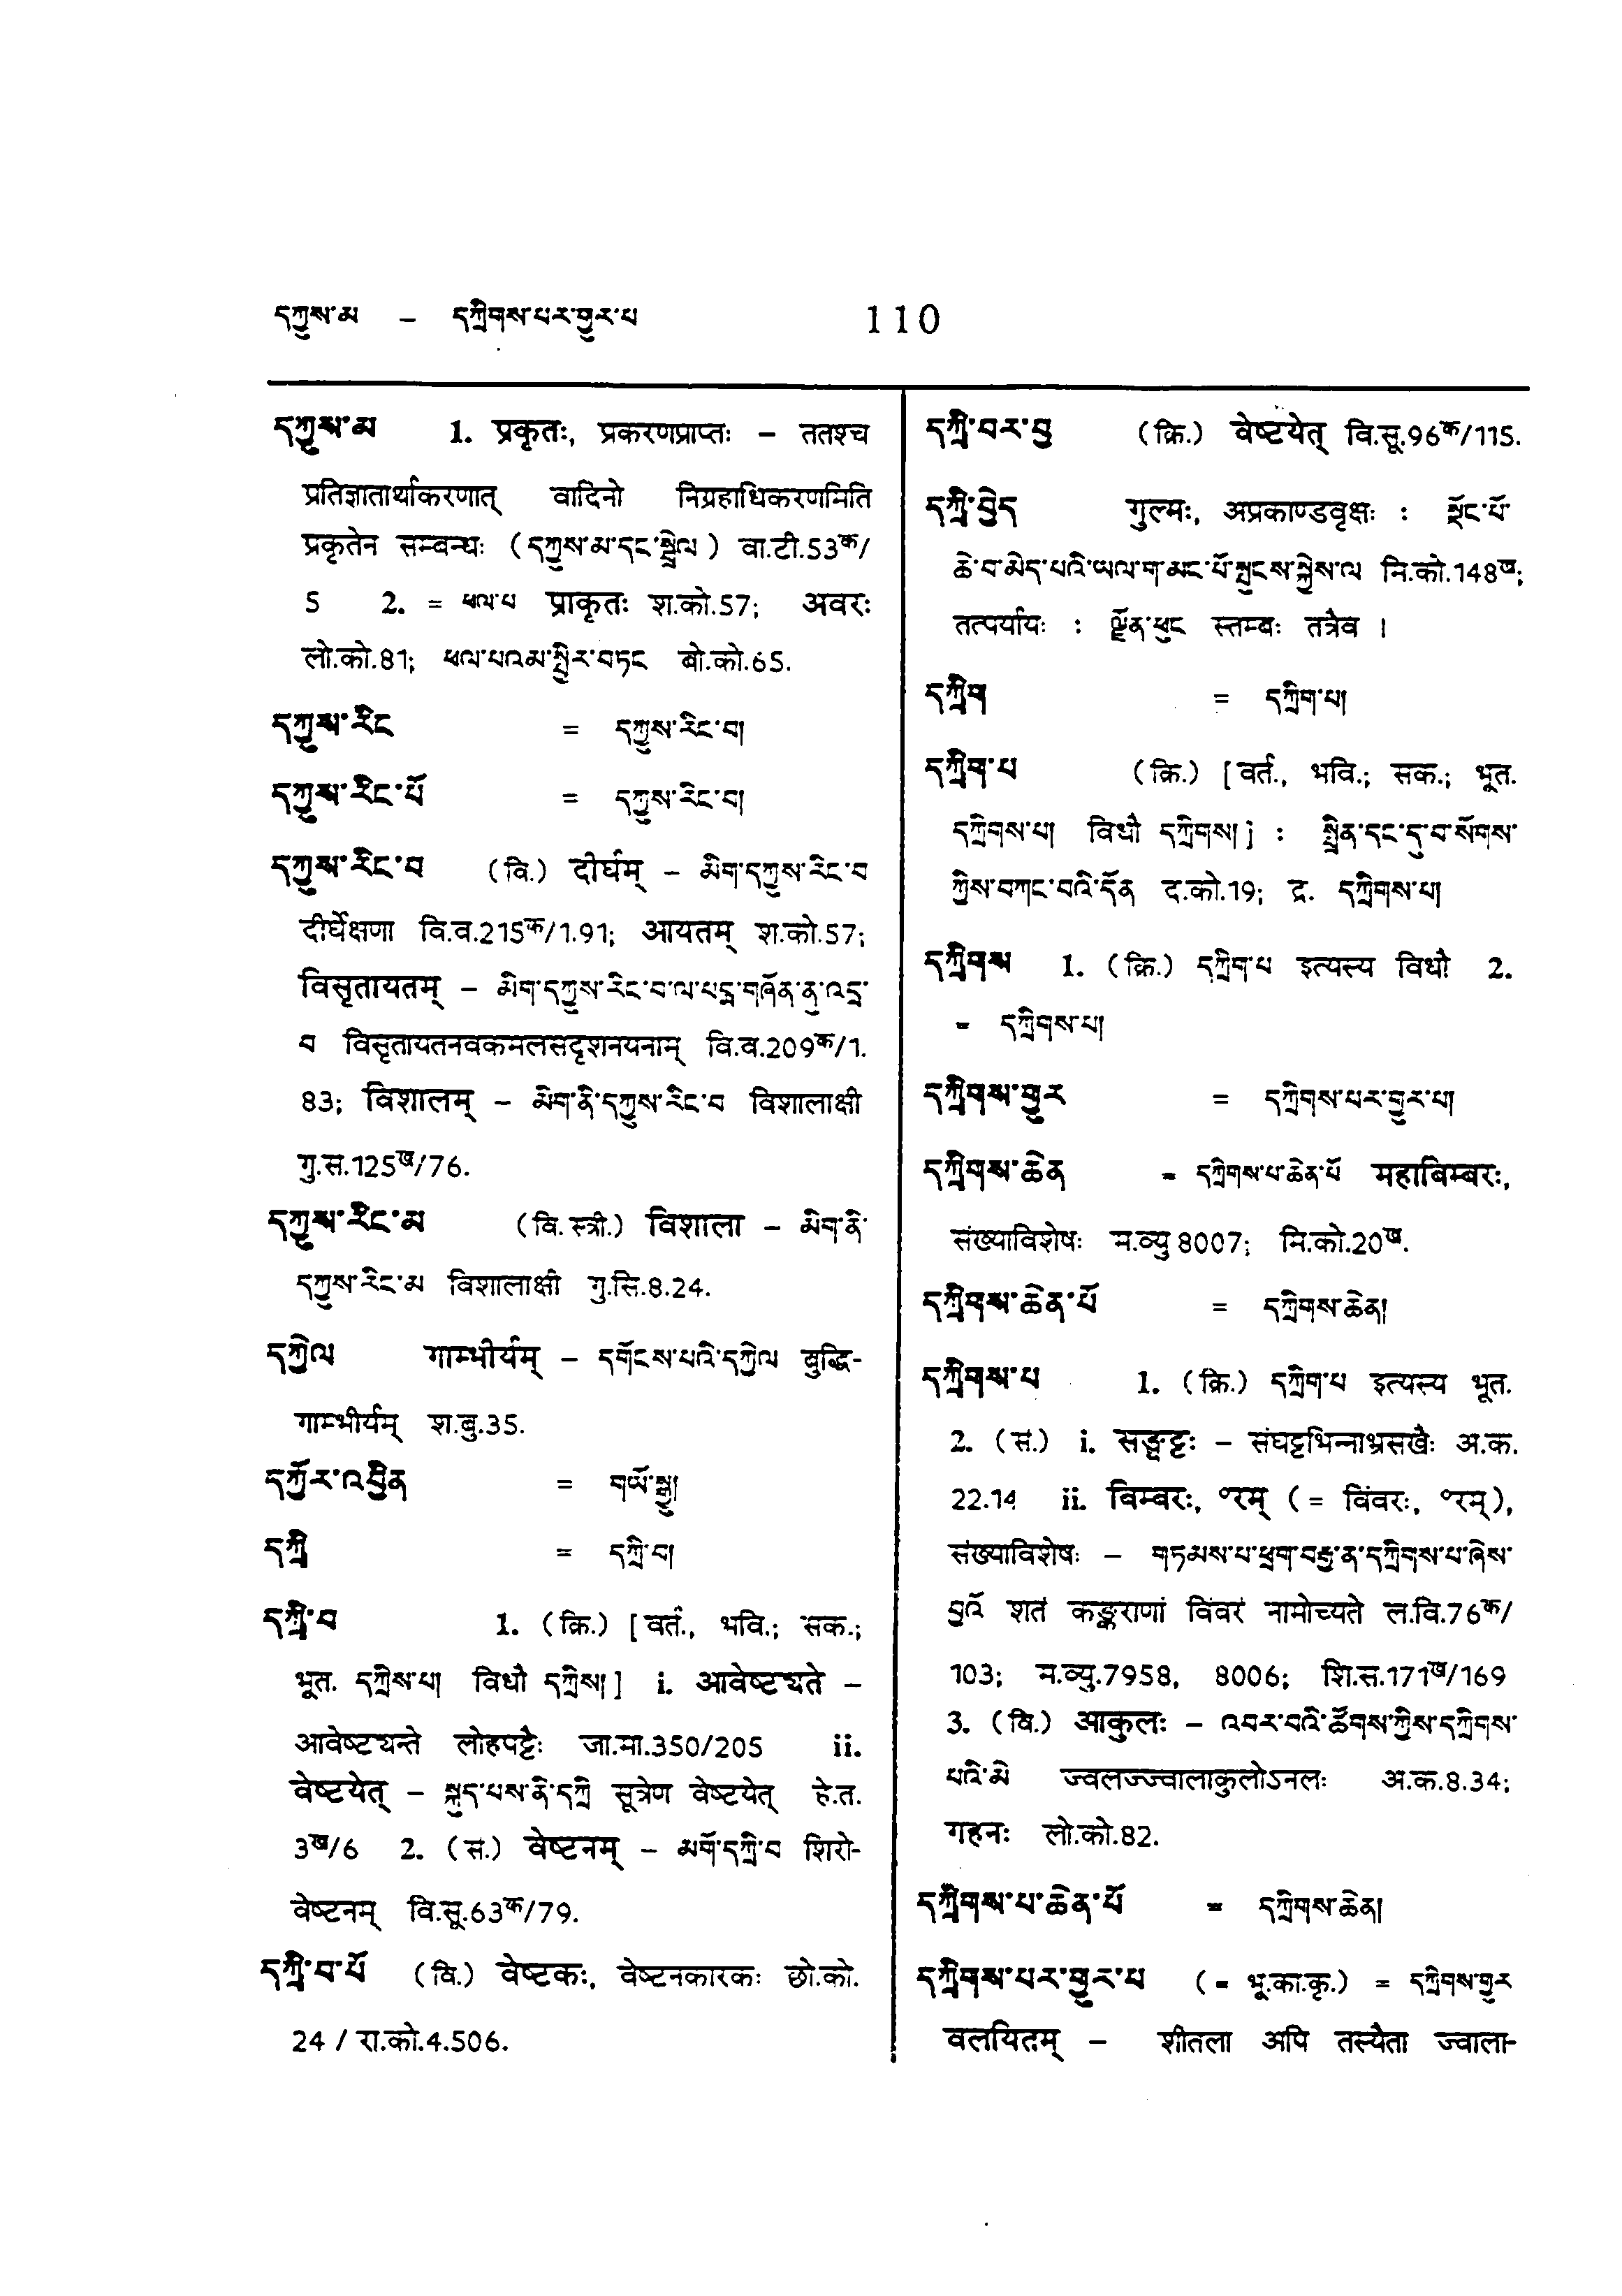 དཀྱུས་མ – དཀྲིགས་པར་གྱུར་པ 110
དཀྱུས་མ 1. प्रकृतः, प्रकरणप्राप्तः – ततश्च
प्रतिज्ञातार्थाकरणात् वादिनो निग्रहाधिकरणमिति
प्रकृतेन सम्बन्धः (དཀྱུས་མ་དང་སྦྲེལ) वा.टी.53क/
5 2. = ཕལ་པ प्राकृतः श.को.57; अवरः
लो.को.81; ཕལ་པའམ་སྤྱིར་བཏང बो.को.65.
དཀྱུས་རིང = དཀྱུས་རིང་བ།
དཀྱུས་རིང་པོ = དཀྱུས་རིང་བ།
དཀྱུས་རིང་བ (वि.) दीर्घम् – མིག་དཀྱུས་རིང་བ
दीर्घेक्षणा वि.व.215क/1.91; आयतम् श.को.57;
विसृतायतम् – མིག་དཀྱུས་རིང་བ་ལ་པདྨ་གཞོན་ནུ་འདྲ་
བ विसृतायतनवकमलसदृशनयनाम् वि.व.209क/1.
83; विशालम् – མིག་ནི་དཀྱུས་རིང་བ विशालाक्षी
गु.स.125ख/76.
དཀྱུས་རིང་མ (वि.स्त्री.) विशाला – མིག་ནི་
དཀྱུས་རིང་མ विशालाक्षी गु.सि.8.24.
དཀྱེལ गाम्भीर्यम् – དགོངས་པའི་དཀྱེལ बुद्धि-
गाम्भीर्यम् श.बु.35.
དཀྱོར་འབྱིན = གཡོ་སྒྱུ།
དཀྲི = དཀྲི་བ།
དཀྲི་བ 1. (क्रि.) [वर्त., भवि.; सक.;
भूत. དཀྲིས་པ། विधौ དཀྲིས།] i. आवेष्ट्यते –
आवेष्ट्यन्ते लोहपट्टैः जा.मा.350/205 ii.
वेष्टयेत् – སྐུད་པས་ནི་དཀྲི सूत्रेण वेष्टयेत् हे.त.
3ख/6 2. (सं.) वेष्टनम् – མགོ་དཀྲི་བ शिरो-
वेष्टनम् वि.सू.63क/79.
དཀྲི་བ་པོ (वि.) वेष्टकः, वेष्टनकारकः छो.को.
24 / रा.को.4.506.
དཀྲི་བར་བུ (क्रि.) वेष्टयेत् वि.सू.96क/115.
དཀྲི་བྱེད गुल्मः, अप्रकाण्डवृक्षः : སྡོང་པོ་
ཆེ་བ་མེད་པའི་ཡལ་ག་མང་པོ་སྤུངས་སྐྱེས་ལ मि.को.148ख;
तत्पर्यायः : ལྗོན་ཕུང स्तम्बः तत्रैव ।
དཀྲིག = དཀྲིག་པ།
དཀྲིག་པ (क्रि.) [वर्त., भवि.; सक.; भूत.
དཀྲིགས་པ། विधौ དཀྲིགས།] : སྤྲིན་དང་དུ་བ་སོགས་
ཀྱིས་བཀང་བའི་དོན द.को.19; द्र. དཀྲིགས་པ།
དཀྲིགས 1. (क्रि.) དཀྲིག་པ इत्यस्य विधौ 2.
= དཀྲིགས་པ།
དཀྲིགས་གྱུར = དཀྲིགས་པར་གྱུར་པ།
དཀྲིགས་ཆེན = དཀྲིགས་པ་ཆེན་པོ महाबिम्बरः,
संख्याविशेषः म.व्यु 8007; मि.को.20ख.
དཀྲིགས་ཆེན་པོ = དཀྲིགས་ཆེན།
དཀྲིགས་པ 1. (क्रि.) དཀྲིག་པ इत्यस्य भूत.
2. (सं.) i. सङ्घट्टः – संघट्टभिन्नाभ्रसखैः अ.क.
22.14 ii. बिम्बरः, ॰रम् (= विंवरः, ॰रम्),
संख्याविशेषः – གཏམས་པ་ཕྲག་བརྒྱ་ན་དཀྲིགས་པ་ཞེས་
བྱའོ शतं कङ्कराणां विंवरं नामोच्यते ल.वि.76क/
103; म.व्यु.7958, 8006; शि.स.171ख/169
3. (वि.) आकुलः – འབར་བའི་ཚོགས་ཀྱིས་དཀྲིགས་
པའི་མེ ज्वलज्ज्वालाकुलोऽनलः अ.क.8.34;
गहनः लो.को.82.
དཀྲིགས་པ་ཆེན་པོ = དཀྲིགས་ཆེན།
དཀྲིགས་པར་གྱུར་པ (= भू.का.कृ.) = དཀྲིགས་གྱུར
वलयितम् – शीतला अपि तस्यैता ज्वाला-